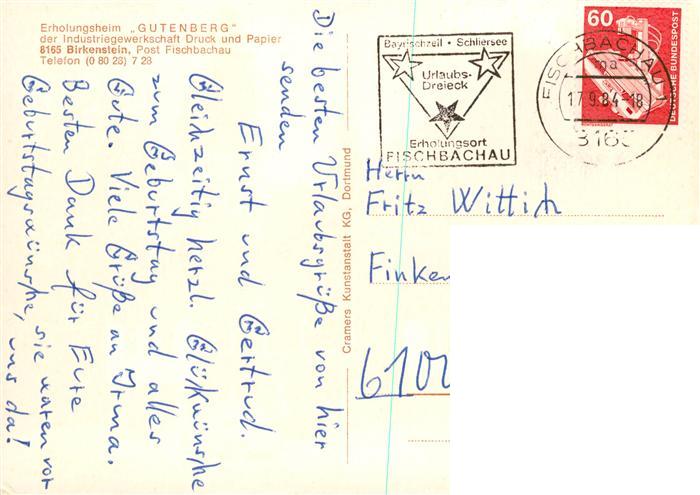 Erholungsheim „GUTENBERG"
der Industriegewerkschaft Druck und Papier
8165 Birkenstein, Post Fischbachau
Telefon (0 80 28) 7 28
Die besten Urlaubsgrüße von hier
senden
Ernst und Gertrud.
Gleichzeitig herzl. Glükwünsche
zum Geburtstag und alles
Gute. Viele Grüße an Irma.
Besten Dank für Eure
Geburtstagswünsche, sie waren vor
uns da!
Cramers Kunstanstalt KG, Dortmund
Bayrischzell · Schliersee
Urlaubs-
Dreieck
Erholungsort
FISCHBACHAU
FISCHBACHAU 1
ma
17.9.84-18
816
60
DEUTSCHE BUNDESPOST
Herrn
Fritz Wittich
Finken
6100